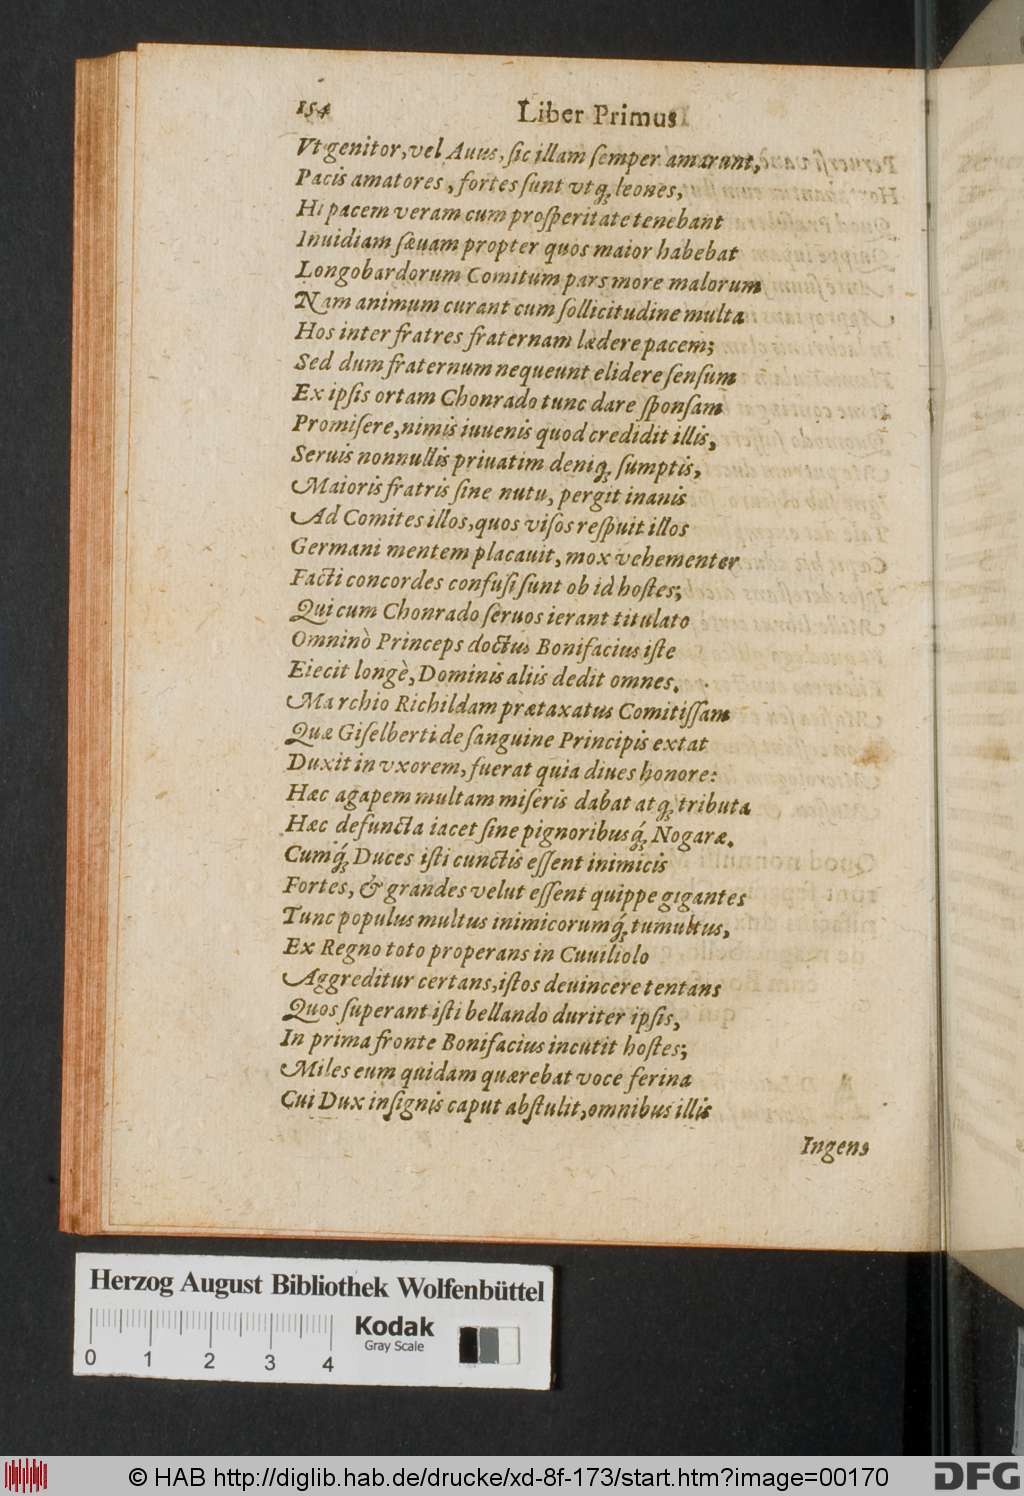 154 Liber Primus
Vt genitor, vel Auus, sic illam semper amarunt,
Pacis amatores, fortes sunt vtq́; leones,
Hi pacem veram cum prosperitate tenebant
Inuidiam sæuam propter quos maior habebat
Longobardorum Comitum pars more malorum
Nam animum curant cum sollicitudine multa
Hos inter fratres fraternam lædere pacem;
Sed dum fraternum nequeunt elidere sensum
Ex ipsis ortam Chonrado tunc dare sponsam
Promisere, nimis iuuenis quod credidit illis,
Seruis nonnullis priuatim deniq; sumptis,
Maioris fratris sine nutu, pergit inanis
Ad Comites illos, quos visos respuit illos
Germani mentem placauit, mox vehementer
Facti concordes confusi sunt ob id hostes;
Qui cum Chonrado seruos ierant titulato
Omninò Princeps doctus Bonifacius iste
Eiecit longè, Dominis aliis dedit omnes.
Marchio Richildam prætaxatus Comitissam
Quæ Giselberti de sanguine Principis extat
Duxit in vxorem, fuerat quia diues honore:
Hæc agapem multam miseris dabat atq; tributa
Hæc defuncta iacet sine pignoribusq́; Nogaræ.
Cumq́; Duces isti cunctis essent inimicis
Fortes, & grandes velut essent quippe gigantes
Tunc populus multus inimicorumq́; tumultus,
Ex Regno toto properans in Cuuiliolo
Aggreditur certans, istos deuincere tentans
Quos superant isti bellando duriter ipsis,
In prima fronte Bonifacius incutit hostes;
Miles eum quidam quærebat voce ferina
Cui Dux insignis caput abstulit, omnibus illis
Ingens
Herzog August Bibliothek Wolfenbüttel
Kodak
Gray Scale
0 1 2 3 4
© HAB http://diglib.hab.de/drucke/xd-8f-173/start.htm?image=00170
DFG